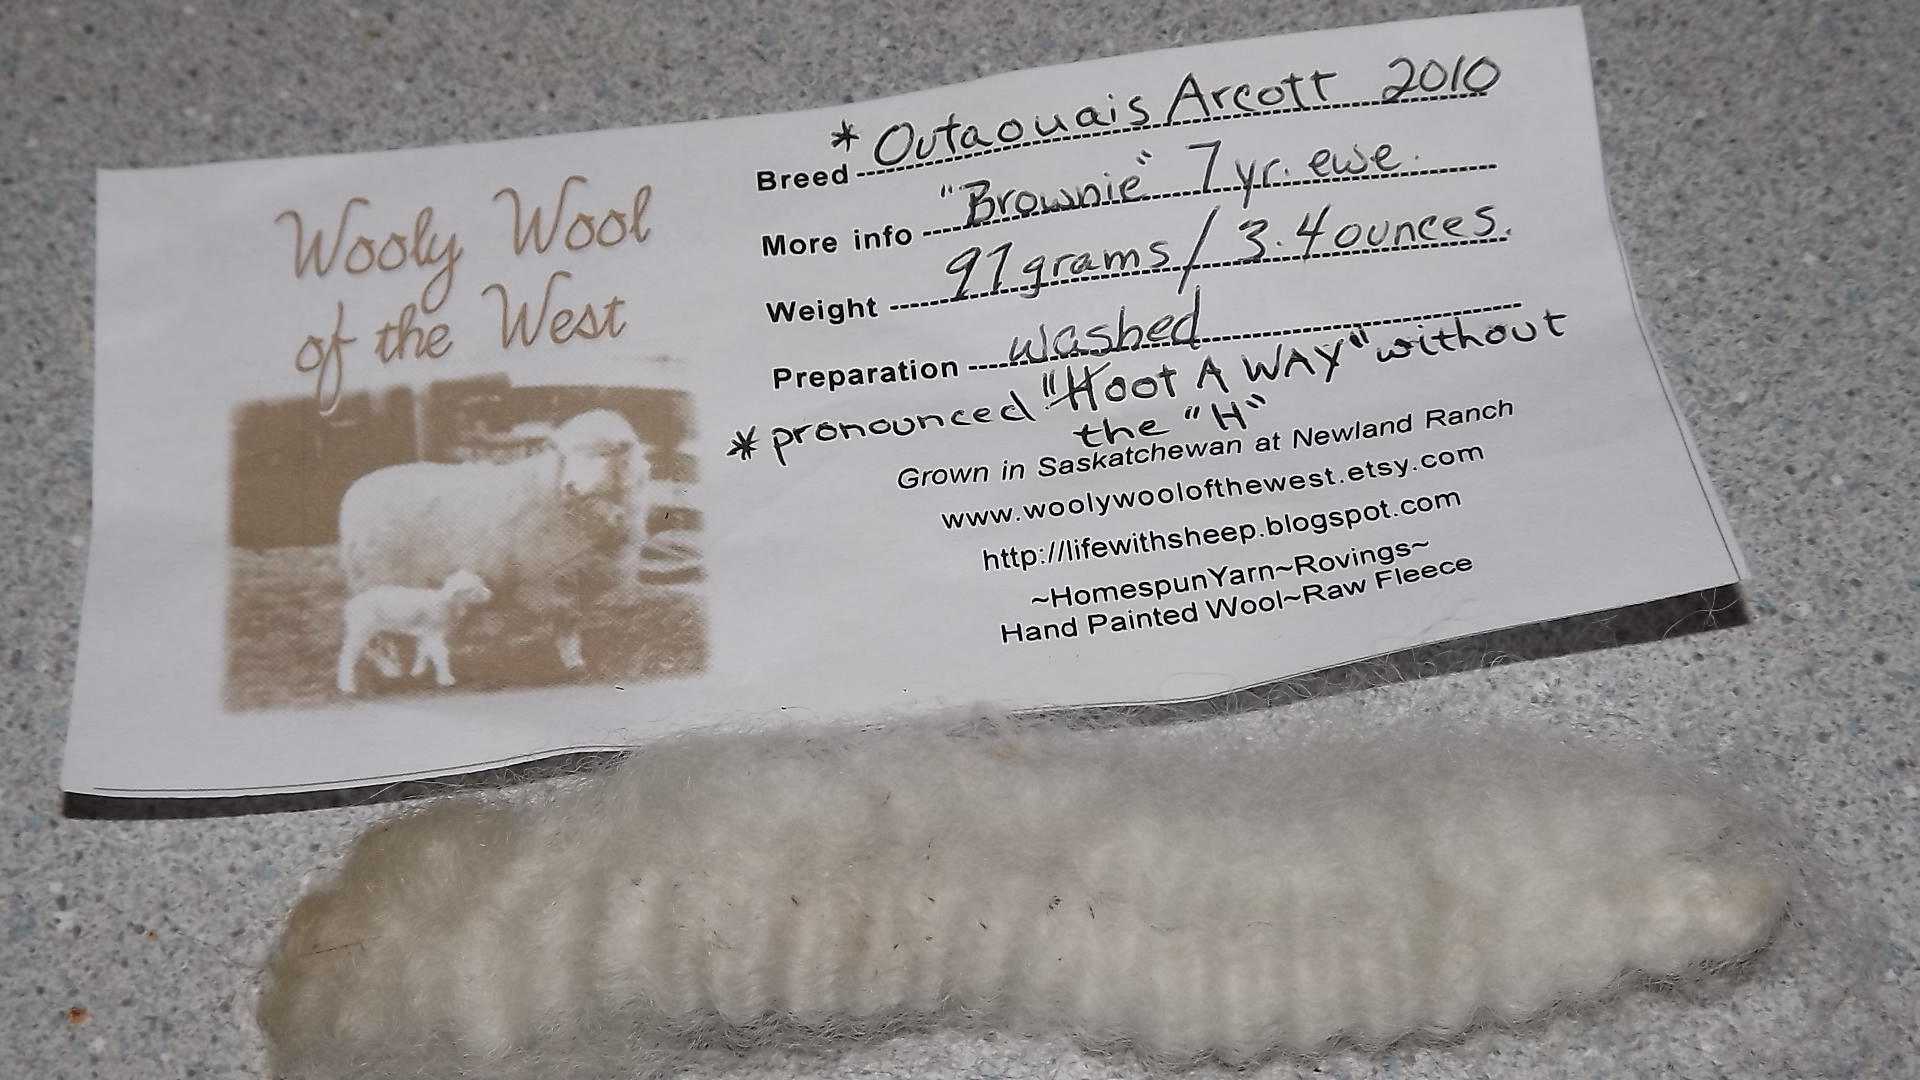 Wooly Wool
of the West
Breed * Outaouais Arcott 2010
More info "Brownie" 7 yr. ewe.
Weight 97 grams / 3.4 ounces.
Preparation washed
* pronounced "HOOT A WAY" without
the "H"
Grown in Saskatchewan at Newland Ranch
www.woolywoolofthewest.etsy.com
http://lifewithsheep.blogspot.com
~HomespunYarn~Rovings~
Hand Painted Wool~Raw Fleece